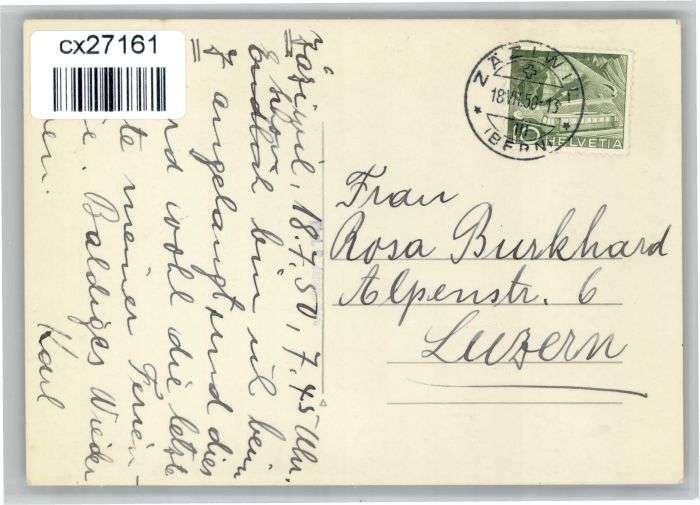 cx27161
ZÄZIWIL
18.VII.50-13
(BERN)
10 HELVETIA
Frau
Rosa Burkhard
Alpenstr. 6
Luzern
Zäziwil, 18.7.50, 7.45 Uhr.
Endlich bin ich beim
Z angelangt, und dies
wohl die letzte
meiner Ferien-
Baldiges Wieder
Karl